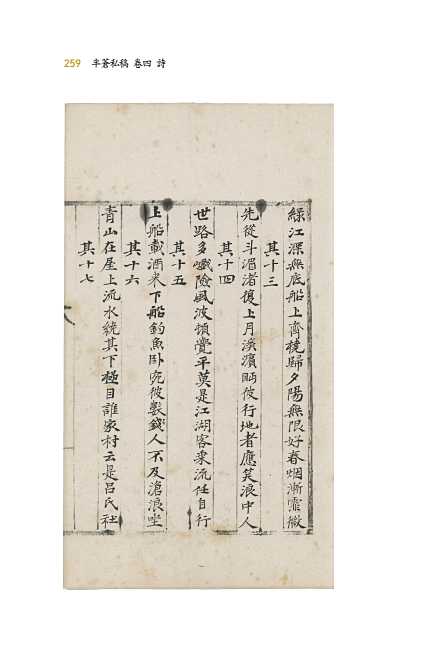 259 半蒼私稿 卷四 詩
綠江深無底船上齊橈歸夕陽無限好春烟漸霏微
其十三
先從斗湄渚復上月溪濱眄彼行地者應笑浪中人
其十四
世路多巇險風波頓覺平莫是江湖客乘流任自行
其十五
上船載酒来下船釣魚卧宛彼數錢人不及滄浪坐
其十六
青山在屋上流水繞其下極目誰家村云是呂氏社
其十七